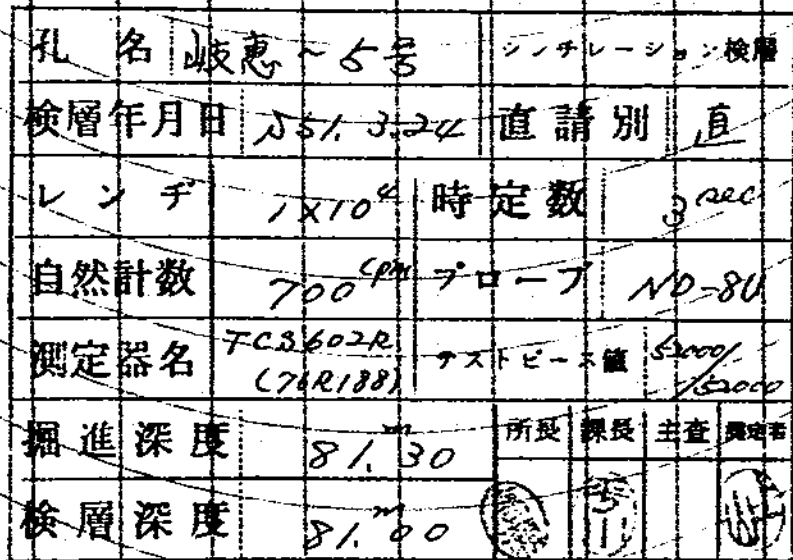 孔名 岐恵~5号 シンチレーション検層
検層年月日 S51.3.24 直請別 直
レンヂ 1×10⁴ 時定数 3 sec
自然計数 700 cpm プローブ ND-8U
測定器名 TCS602R (76R188) テストピース値 52000/52000
掘進深度 81.30 m 所長 課長 主査 測定者
検層深度 81.00 m